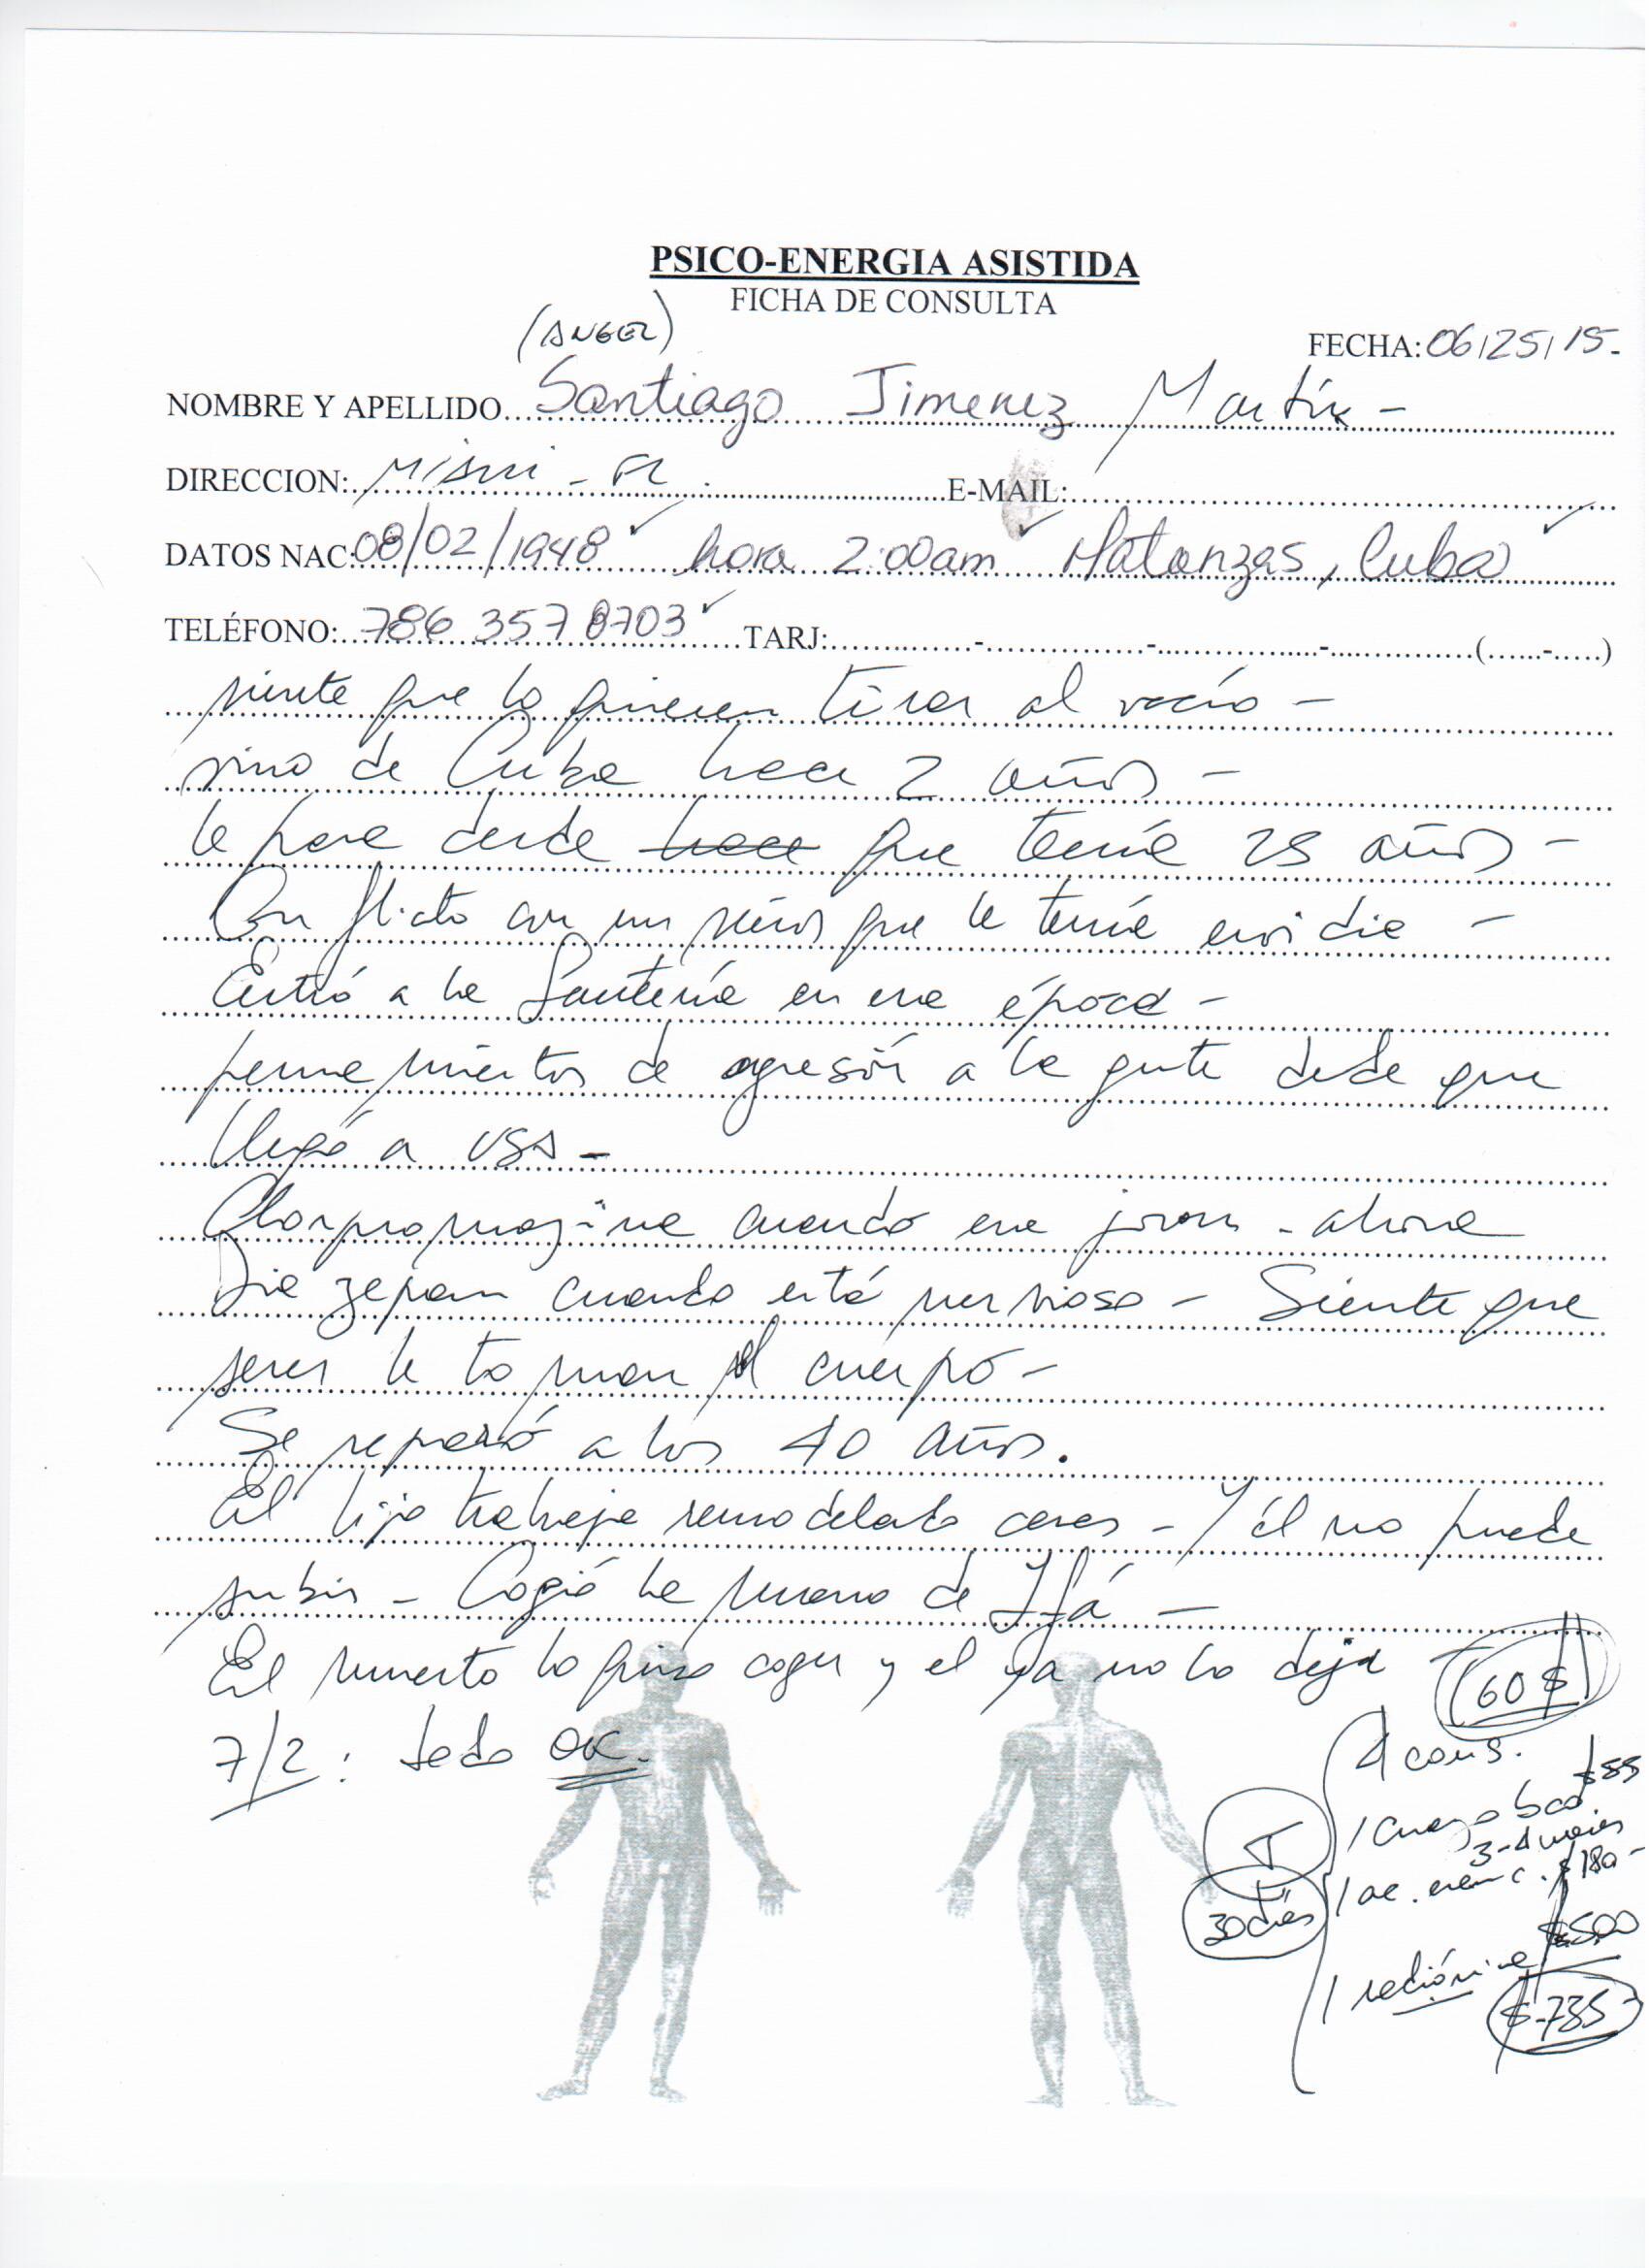 PSICO-ENERGIA ASISTIDA
FICHA DE CONSULTA
(ANGEL)
FECHA: 06/25/15.
NOMBRE Y APELLIDO Santiago Jimenez Martín -
DIRECCION: Miami - FL E-MAIL:
DATOS NAC: 08/02/1948 hora 2:00am Matanzas, Cuba
TELÉFONO: 786 357 8703 TARJ: - - - ( - )
siente que lo quieren tirar al vacío -
vino de Cuba hace 2 años -
le pasa desde hace que tenía 25 años -
Conflicto con un señor que le tenía envidia -
Entró a la Santería en esa época -
pensamientos de agresión a la gente desde que
llegó a USA -
Clorpromazina cuando era joven - ahora
Diazepam cuando está nervioso - Siente que
seres le toman el cuerpo -
Se separó a los 40 años.
El hijo trabaja remodelando casas - Y él no puede
subir - Cogió la mano de Ifá -
El muerto lo quiso coger y el ya no lo deja -
60 $
7/2: todo OK.
4 cons.
T
30 días
1 cuarzo $85
3-4 meses
1 ac. $180 -
1 radiónica $500
$ 735 -